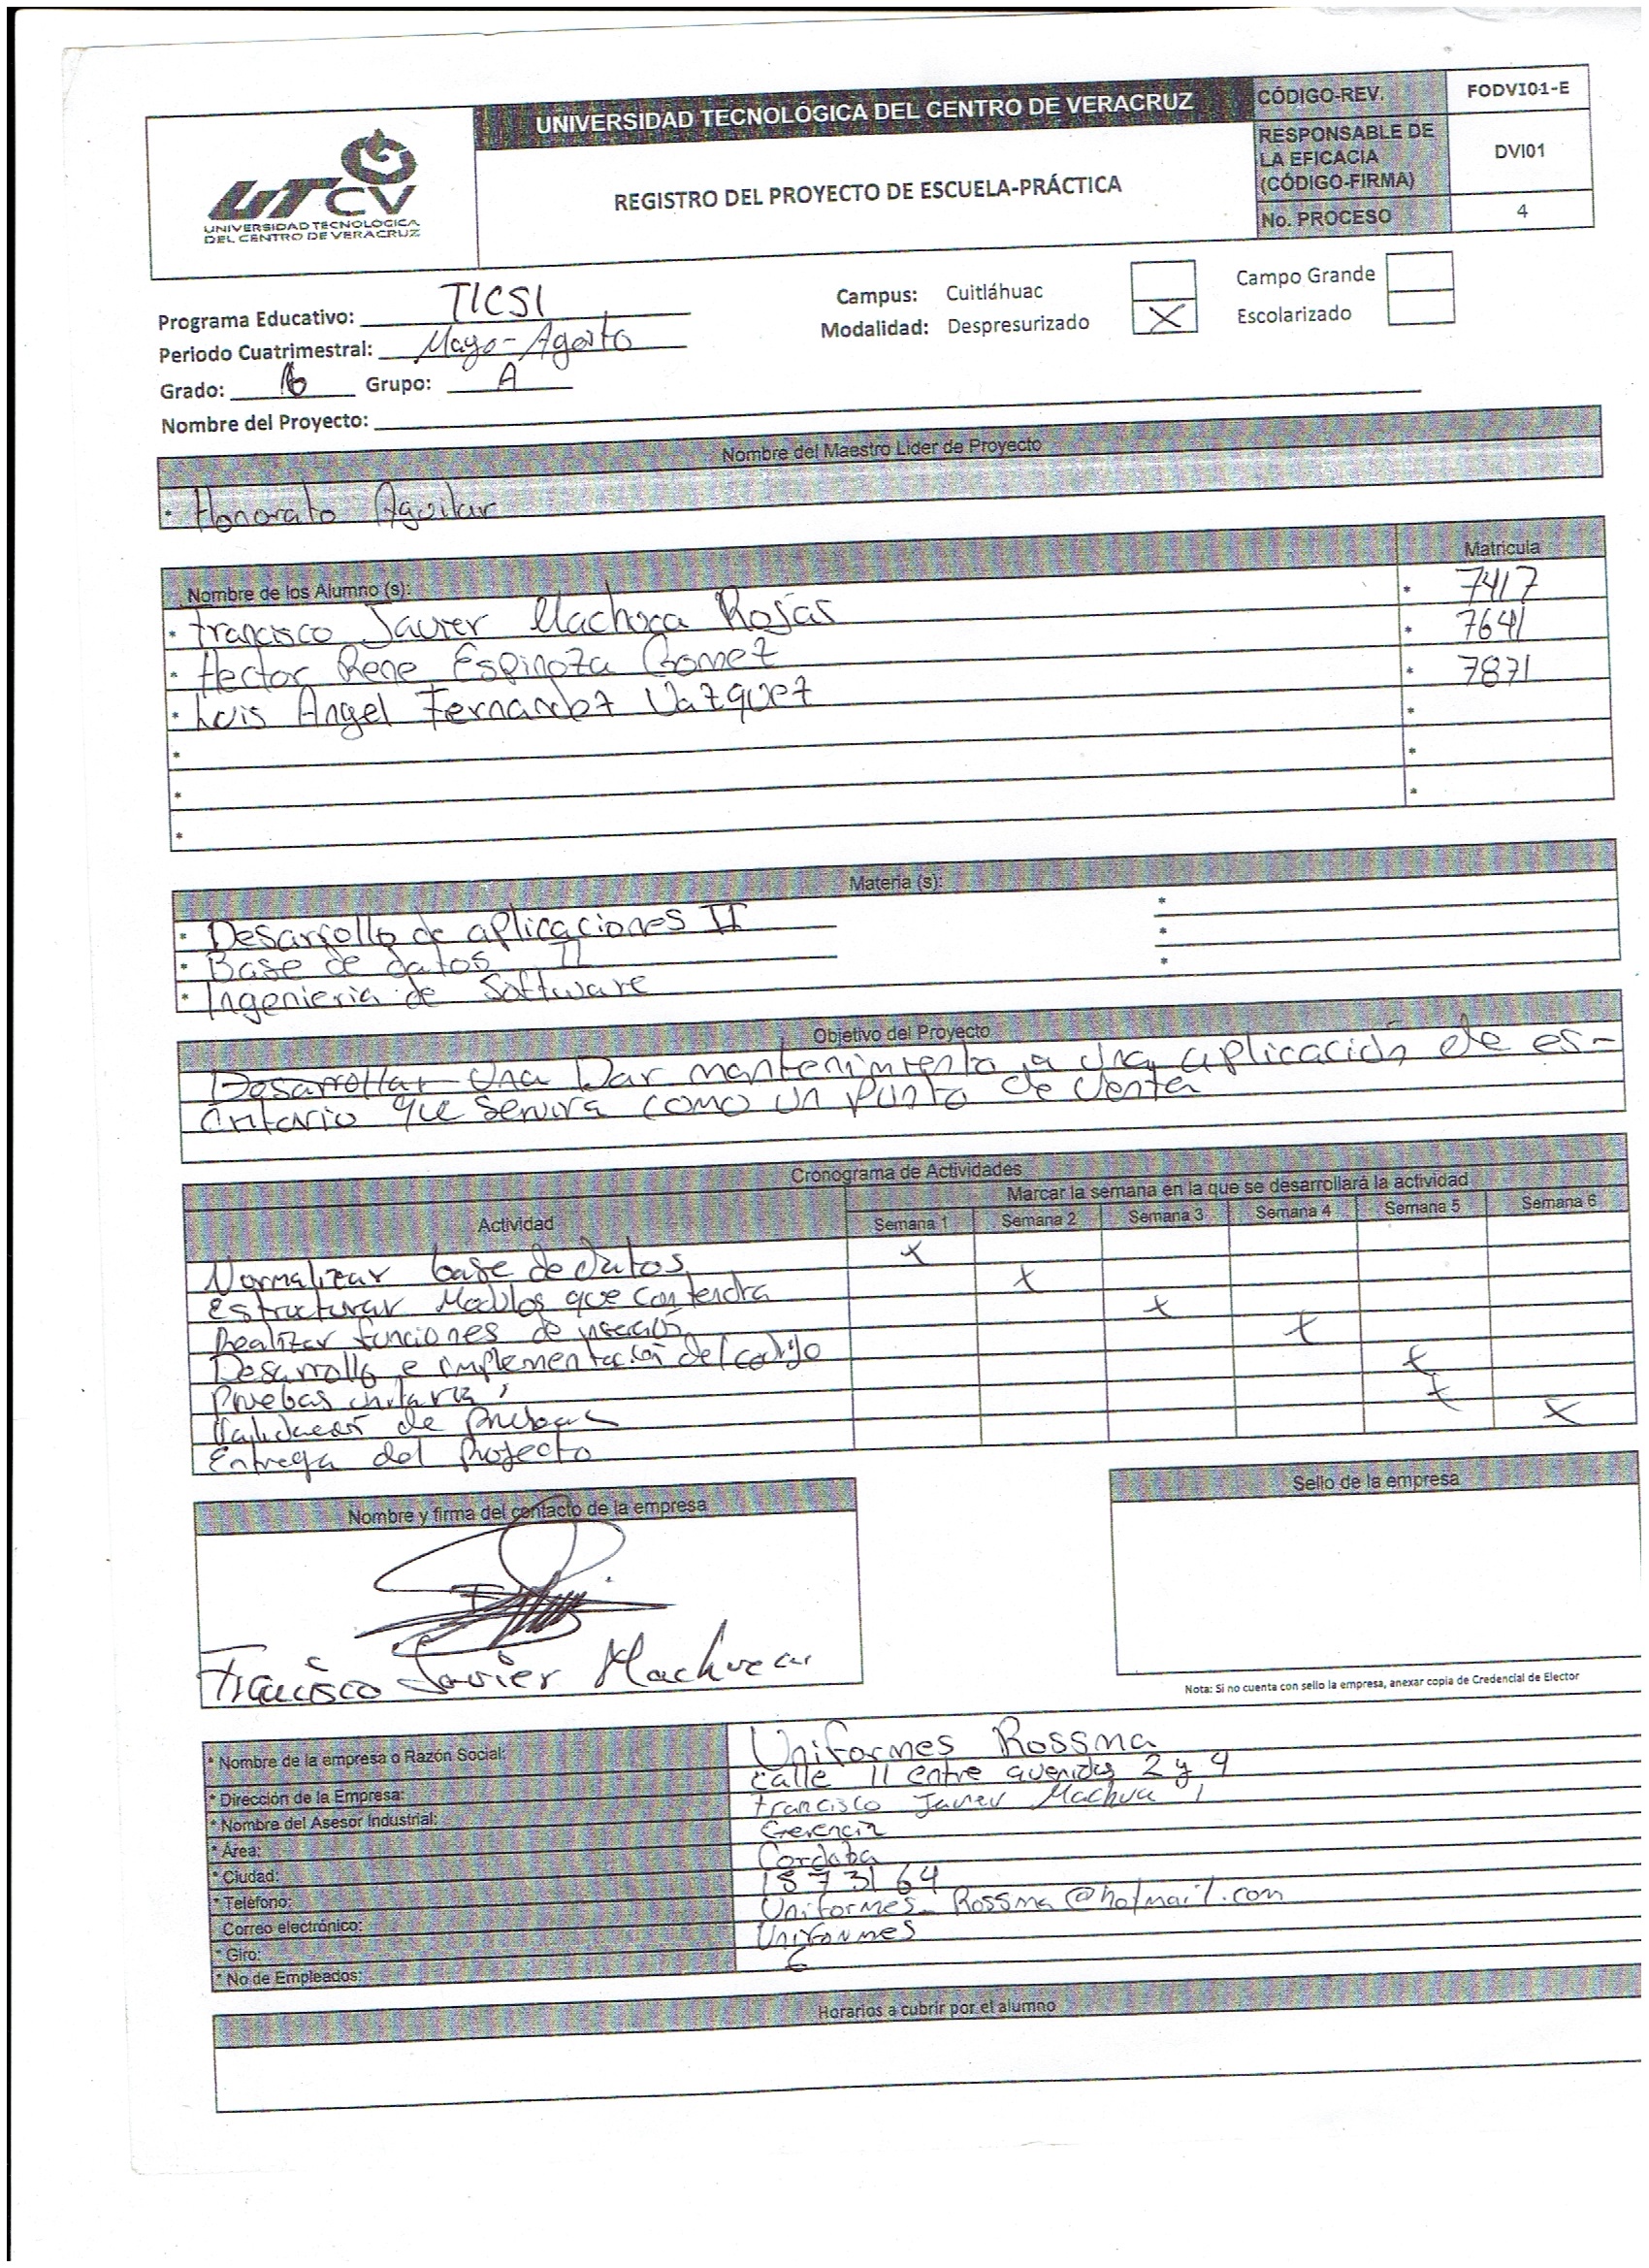 UNIVERSIDAD TECNOLÓGICA DEL CENTRO DE VERACRUZ
CÓDIGO-REV. FODVI01-E
UTCV
UNIVERSIDAD TECNOLÓGICA
DEL CENTRO DE VERACRUZ
REGISTRO DEL PROYECTO DE ESCUELA-PRÁCTICA
RESPONSABLE DE
LA EFICACIA
(CÓDIGO-FIRMA) DVI01
No. PROCESO 4
Programa Educativo: TICSI
Campus: Cuitláhuac Campo Grande
Periodo Cuatrimestral: Mayo-Agosto
Modalidad: Despresurizado X Escolarizado
Grado: 6 Grupo: A
Nombre del Proyecto:
Nombre del Maestro Lider de Proyecto
* Honorato Aguilar
Nombre de los Alumno (s): Matricula
* Francisco Javier Machuca Rojas * 7417
* Hector Rene Espinoza Gomez * 7641
* Luis Angel Fernandez Vazquez * 7871
* *
* *
* *
Materia (s):
* Desarrollo de aplicaciones II *
* Base de datos II *
* Ingenieria de Software *
Objetivo del Proyecto
Desarrollar una Dar mantenimiento a una aplicación de es-
critorio que servira como un punto de venta
Cronograma de Actividades
Actividad Marcar la semana en la que se desarrollará la actividad
Semana 1 Semana 2 Semana 3 Semana 4 Semana 5 Semana 6
Normalizar base de datos X
Estructurar Modulos que contendra X
Realizar funciones de X
Desarrollo e implementación del codigo X
Pruebas unitarias X
Validacion de pruebas X
Entrega del Proyecto X
Nombre y firma del contacto de la empresa
Sello de la empresa
Francisco Javier Machuca
Nota: Si no cuenta con sello la empresa, anexar copia de Credencial de Elector
* Nombre de la empresa o Razón Social: Uniformes Rossma
* Dirección de la Empresa: calle 11 entre avenidas 2 y 4
* Nombre del Asesor Industrial: Francisco Javier Machuca
* Área: Gerencia
* Ciudad: Cordoba
* Teléfono: 1573164
Correo electrónico: Uniformes_Rossma@hotmail.com
* Giro: Uniformes
* No de Empleados: 6
Horarios a cubrir por el alumno